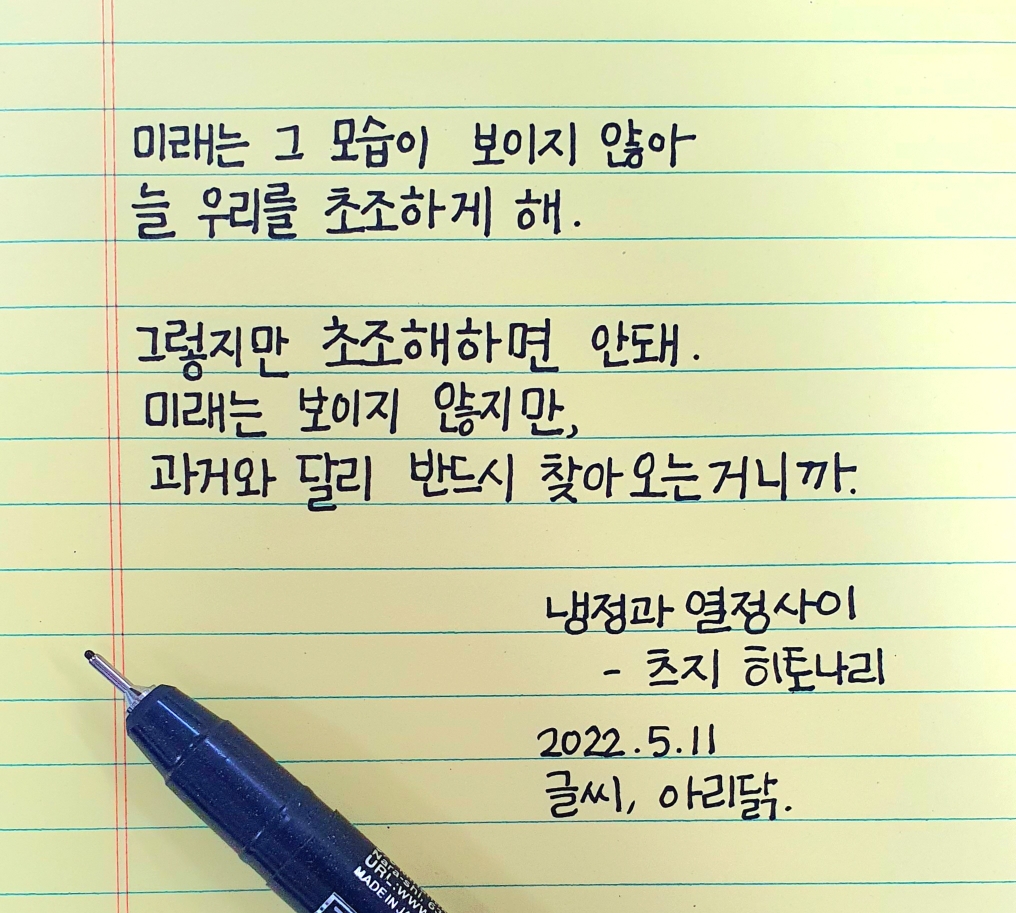 미래는 그 모습이 보이지 않아
늘 우리를 초조하게 해.
그렇지만 초조해하면 안돼.
미래는 보이지 않지만,
과거와 달리 반드시 찾아오는거니까.
냉정과 열정사이
- 츠지 히토나리
2022.5.11
글씨, 아리닭.
Nara-shi,
URL:www
MADE IN